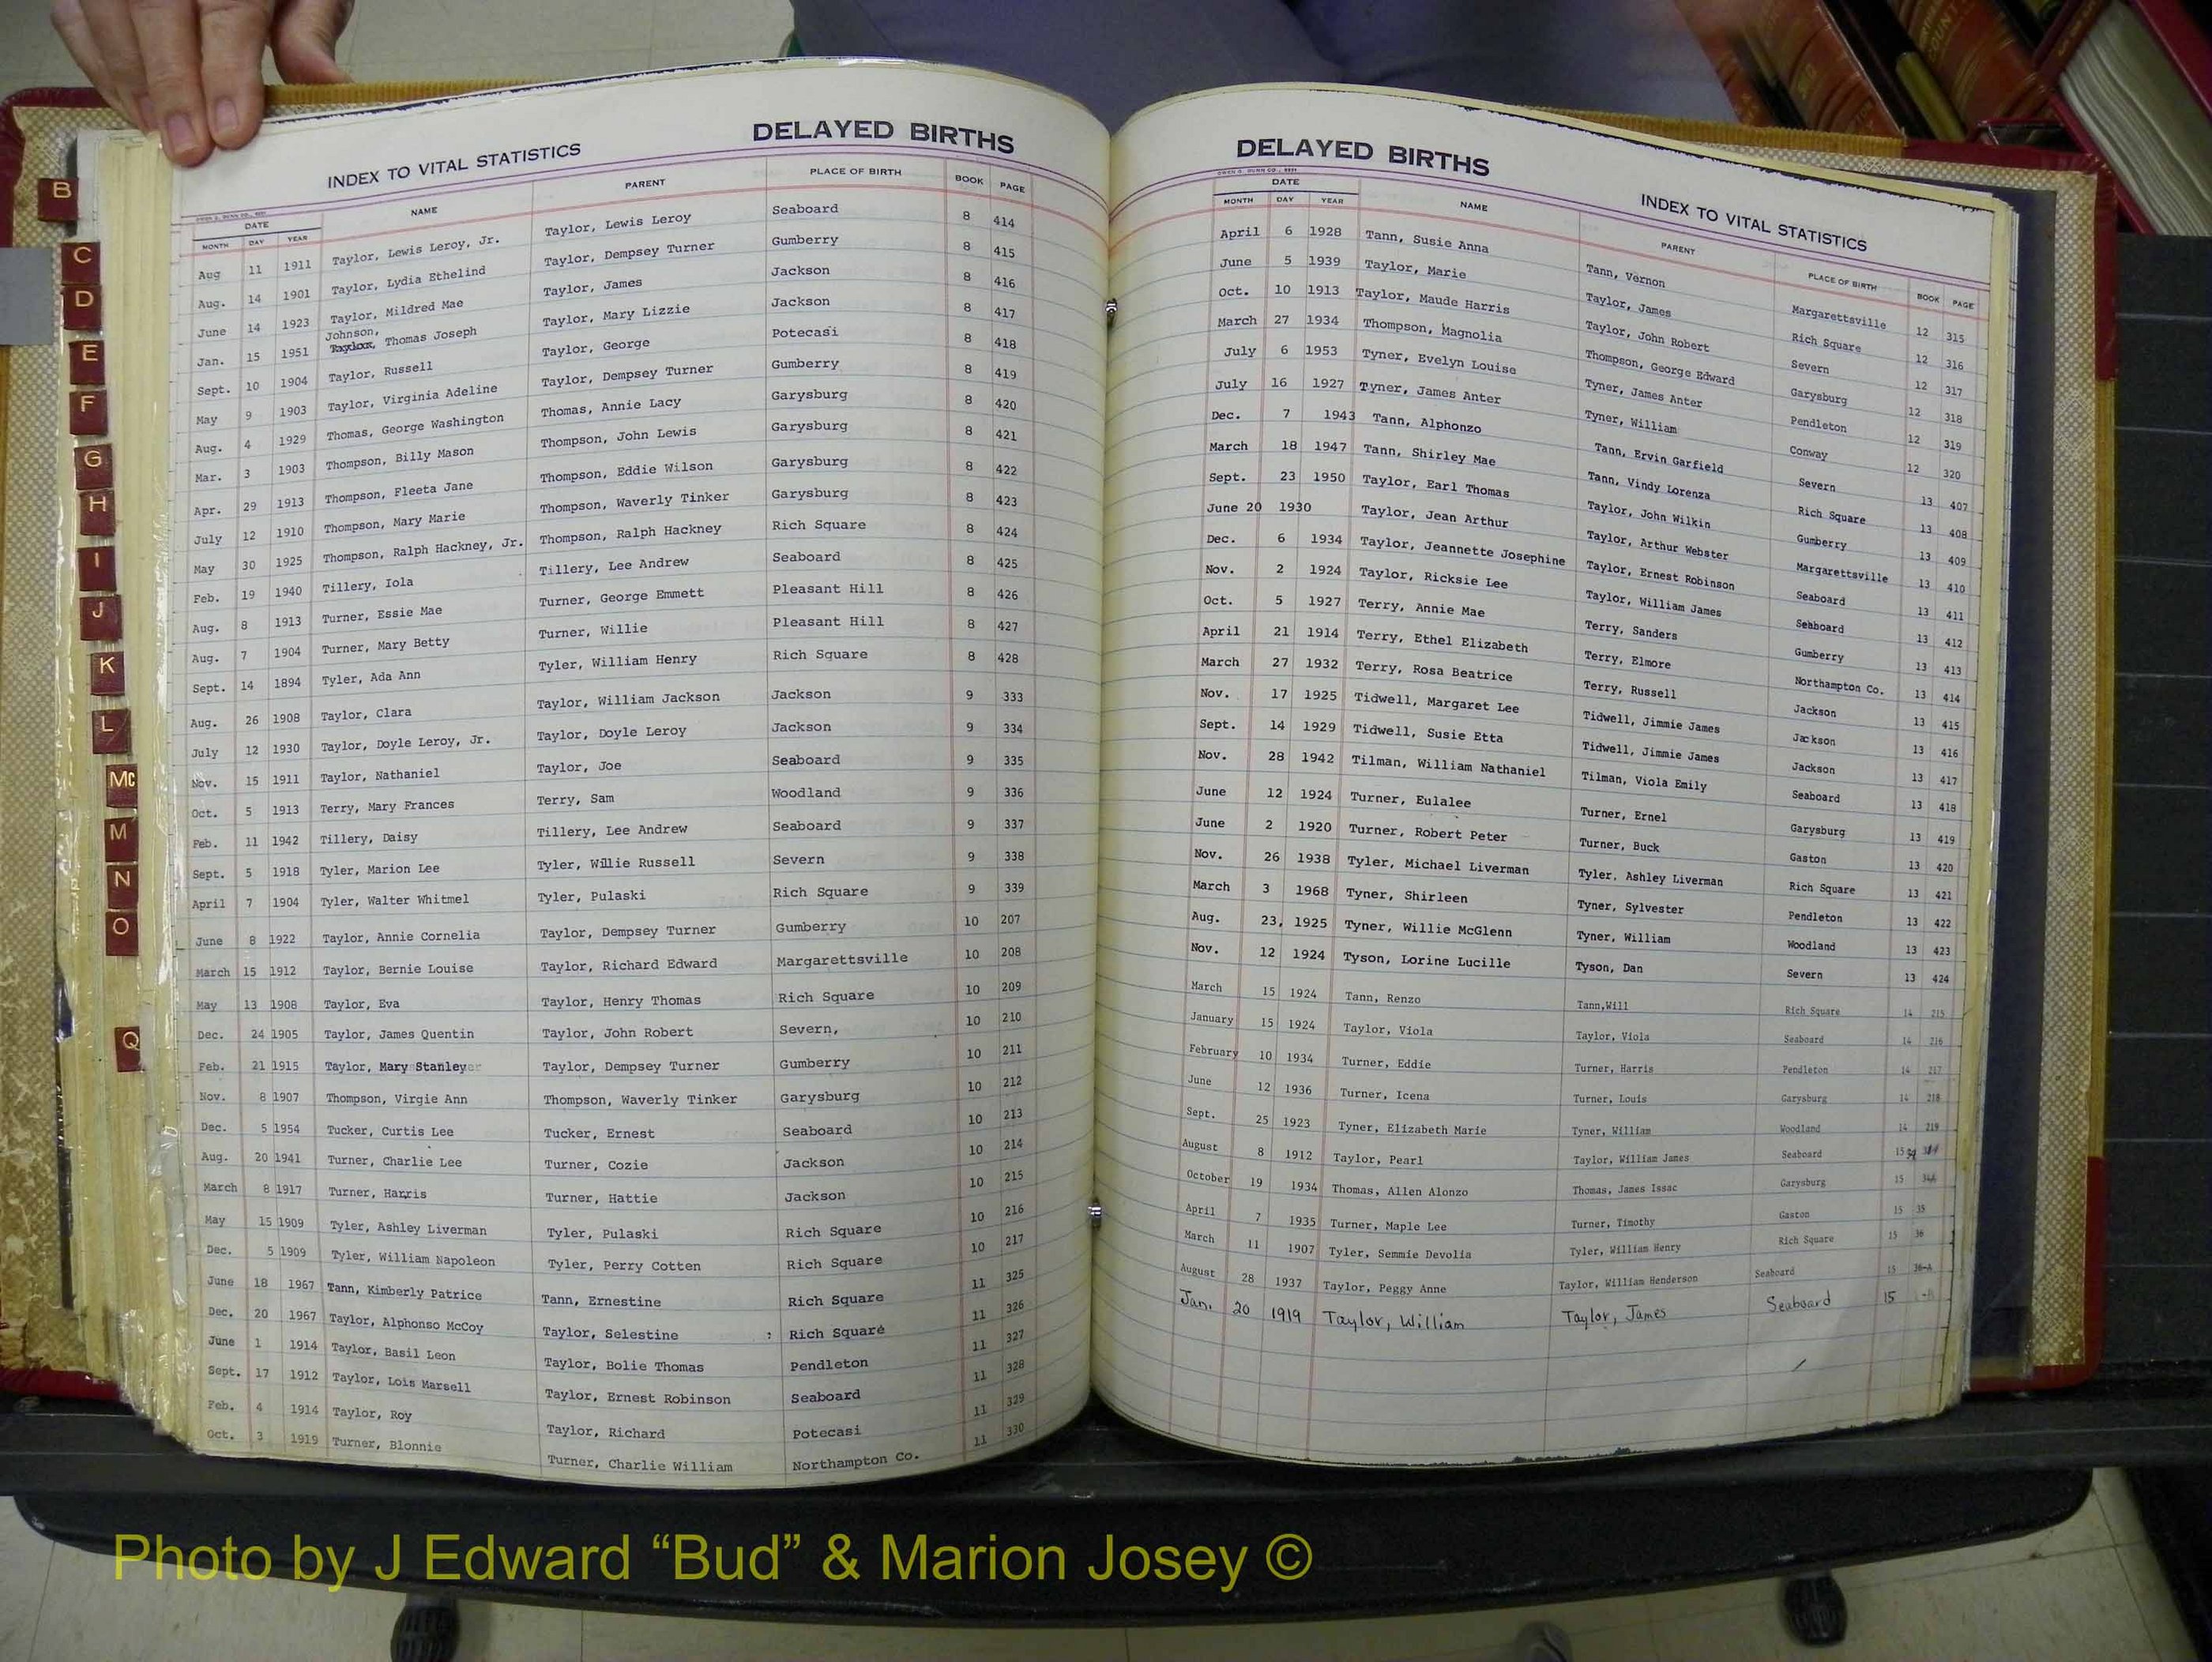 B
C
D
E
F
G
H
I
J
K
L
Mc
M
N
O
Q
INDEX TO VITAL STATISTICS DELAYED BIRTHS
DATE NAME PARENT PLACE OF BIRTH BOOK PAGE
MONTH DAY YEAR
Aug 11 1911 Taylor, Lewis Leroy, Jr. Taylor, Lewis Leroy Seaboard 8 414
Aug. 14 1901 Taylor, Lydia Ethelind Taylor, Dempsey Turner Gumberry 8 415
June 14 1923 Taylor, Mildred Mae Taylor, James Jackson 8 416
Johnson,
Jan. 15 1951 Thomas Joseph Taylor, Mary Lizzie Jackson 8 417
Sept. 10 1904 Taylor, Russell Taylor, George Potecasi 8 418
May 9 1903 Taylor, Virginia Adeline Taylor, Dempsey Turner Gumberry 8 419
Aug. 4 1929 Thomas, George Washington Thomas, Annie Lacy Garysburg 8 420
Mar. 3 1903 Thompson, Billy Mason Thompson, John Lewis Garysburg 8 421
Apr. 29 1913 Thompson, Fleeta Jane Thompson, Eddie Wilson Garysburg 8 422
July 12 1910 Thompson, Mary Marie Thompson, Waverly Tinker Garysburg 8 423
May 30 1925 Thompson, Ralph Hackney, Jr. Thompson, Ralph Hackney Rich Square 8 424
Feb. 19 1940 Tillery, Iola Tillery, Lee Andrew Seaboard 8 425
Aug. 8 1913 Turner, Essie Mae Turner, George Emmett Pleasant Hill 8 426
Aug. 7 1904 Turner, Mary Betty Turner, Willie Pleasant Hill 8 427
Sept. 14 1894 Tyler, Ada Ann Tyler, William Henry Rich Square 8 428
Aug. 26 1908 Taylor, Clara Taylor, William Jackson Jackson 9 333
July 12 1930 Taylor, Doyle Leroy, Jr. Taylor, Doyle Leroy Jackson 9 334
Nov. 15 1911 Taylor, Nathaniel Taylor, Joe Seaboard 9 335
Oct. 5 1913 Terry, Mary Frances Terry, Sam Woodland 9 336
Feb. 11 1942 Tillery, Daisy Tillery, Lee Andrew Seaboard 9 337
Sept. 5 1918 Tyler, Marion Lee Tyler, Willie Russell Severn 9 338
April 7 1904 Tyler, Walter Whitmel Tyler, Pulaski Rich Square 9 339
June 8 1922 Taylor, Annie Cornelia Taylor, Dempsey Turner Gumberry 10 207
March 15 1912 Taylor, Bernie Louise Taylor, Richard Edward Margarettsville 10 208
May 13 1908 Taylor, Eva Taylor, Henry Thomas Rich Square 10 209
Dec. 24 1905 Taylor, James Quentin Taylor, John Robert Severn, 10 210
Feb. 21 1915 Taylor, Mary Stanley Taylor, Dempsey Turner Gumberry 10 211
Nov. 8 1907 Thompson, Virgie Ann Thompson, Waverly Tinker Garysburg 10 212
Dec. 5 1954 Tucker, Curtis Lee Tucker, Ernest Seaboard 10 213
Aug. 20 1941 Turner, Charlie Lee Turner, Cozie Jackson 10 214
March 8 1917 Turner, Harris Turner, Hattie Jackson 10 215
May 15 1909 Tyler, Ashley Liverman Tyler, Pulaski Rich Square 10 216
Dec. 5 1909 Tyler, William Napoleon Tyler, Perry Cotten Rich Square 10 217
June 18 1967 Tann, Kimberly Patrice Tann, Ernestine Rich Square 11 325
Dec. 20 1967 Taylor, Alphonso McCoy Taylor, Selestine Rich Square 11 326
June 1 1914 Taylor, Basil Leon Taylor, Bolie Thomas Pendleton 11 327
Sept. 17 1912 Taylor, Lois Marsell Taylor, Ernest Robinson Seaboard 11 328
Feb. 4 1914 Taylor, Roy Taylor, Richard Potecasi 11 329
Oct. 3 1919 Turner, Blonnie Turner, Charlie William Northampton Co. 11 330
DELAYED BIRTHS INDEX TO VITAL STATISTICS
DATE NAME PARENT PLACE OF BIRTH BOOK PAGE
MONTH DAY YEAR
April 6 1928 Tann, Susie Anna Tann, Vernon Margarettsville 12 315
June 5 1939 Taylor, Marie Taylor, James Rich Square 12 316
Oct. 10 1913 Taylor, Maude Harris Taylor, John Robert Severn 12 317
March 27 1934 Thompson, Magnolia Thompson, George Edward Garysburg 12 318
July 6 1953 Tyner, Evelyn Louise Tyner, James Anter Pendleton 12 319
July 16 1927 Tyner, James Anter Tyner, William Conway 12 320
Dec. 7 1943 Tann, Alphonzo Tann, Ervin Garfield Severn 13 407
March 18 1947 Tann, Shirley Mae Tann, Vindy Lorenza Rich Square 13 408
Sept. 23 1950 Taylor, Earl Thomas Taylor, John Wilkin Gumberry 13 409
June 20 1930 Taylor, Jean Arthur Taylor, Arthur Webster Margarettsville 13 410
Dec. 6 1934 Taylor, Jeannette Josephine Taylor, Ernest Robinson Seaboard 13 411
Nov. 2 1924 Taylor, Ricksie Lee Taylor, William James Seaboard 13 412
Oct. 5 1927 Terry, Annie Mae Terry, Sanders Gumberry 13 413
April 21 1914 Terry, Ethel Elizabeth Terry, Elmore Northampton Co. 13 414
March 27 1932 Terry, Rosa Beatrice Terry, Russell Jackson 13 415
Nov. 17 1925 Tidwell, Margaret Lee Tidwell, Jimmie James Jackson 13 416
Sept. 14 1929 Tidwell, Susie Etta Tidwell, Jimmie James Jackson 13 417
Nov. 28 1942 Tilman, William Nathaniel Tilman, Viola Emily Seaboard 13 418
June 12 1924 Turner, Eulalee Turner, Ernel Garysburg 13 419
June 2 1920 Turner, Robert Peter Turner, Buck Gaston 13 420
Nov. 26 1938 Tyler, Michael Liverman Tyler, Ashley Liverman Rich Square 13 421
March 3 1968 Tyner, Shirleen Tyner, Sylvester Pendleton 13 422
Aug. 23, 1925 Tyner, Willie McGlenn Tyner, William Woodland 13 423
Nov. 12 1924 Tyson, Lorine Lucille Tyson, Dan Severn 13 424
March 15 1924 Tann, Renzo Tann,Will Rich Square 14 215
January 15 1924 Taylor, Viola Taylor, Viola Seaboard 14 216
February 10 1934 Turner, Eddie Turner, Harris Pendleton 14 217
June 12 1936 Turner, Icena Turner, Louis Garysburg 14 218
Sept. 25 1923 Tyner, Elizabeth Marie Tyner, William Woodland 14 219
August 8 1912 Taylor, Pearl Taylor, William James Seaboard 15
October 19 1934 Thomas, Allen Alonzo Thomas, James Issac Garysburg 15
April 7 1935 Turner, Maple Lee Turner, Timothy Gaston 15 35
March 11 1907 Tyler, Semmie Devolia Tyler, William Henry Rich Square 15 36
August 28 1937 Taylor, Peggy Anne Taylor, William Henderson Seaboard 15 36-A
Jan. 20 1919 Taylor, William Taylor, James Seaboard 15
Photo by J Edward “Bud” & Marion Josey ©